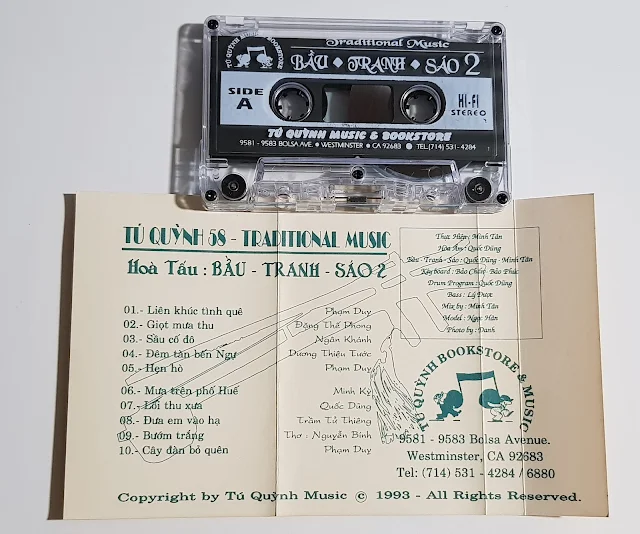 TÚ QUỲNH MUSIC BOOKSTORE
Traditional Music
BẦU ◆ TRANH ◆ SÁO 2
SIDE A
HI-FI
STEREO
TÚ QUỲNH MUSIC & BOOKSTORE
9581 - 9583 BOLSA AVE. ● WESTMINSTER ● CA 92683 ● TEL.(714) 531 - 4284
TÚ QUỲNH 58 - TRADITIONAL MUSIC
Hoà Tấu : BẦU - TRANH - SÁO 2
01.- Liên khúc tình quê Phạm Duy
02.- Giọt mưa thu Đặng Thế Phong
03.- Sầu cố đô Ngân Khánh
04.- Đêm tàn bến Ngự Dương Thiệu Tước
05.- Hẹn hò Phạm Duy
06.- Mưa trên phố Huế Minh Kỳ
07.- Lối thu xưa Quốc Dũng
08.- Đưa em vào hạ Trầm Tử Thiêng
09.- Bướm trắng Thơ : Nguyễn Bính
10.- Cây đàn bỏ quên Phạm Duy
Thực Hiện : Minh Tân
Hòa Âm : Quốc Dũng
Bầu - Tranh - Sáo : Quốc Dũng - Minh Tân
Keyboard : Bảo Chấn - Bảo Phúc
Drum Program : Quốc Dũng
Bass : Lý Được
Mix by : Minh Tân
Model : Ngọc Hân
Photo by : Danh
TÚ QUỲNH BOOKSTORE & MUSIC
9581 - 9583 Bolsa Avenue.
Westminster, CA 92683
Tel: (714) 531 - 4284 / 6880
Copyright by Tú Quỳnh Music © 1993 - All Rights Reserved.